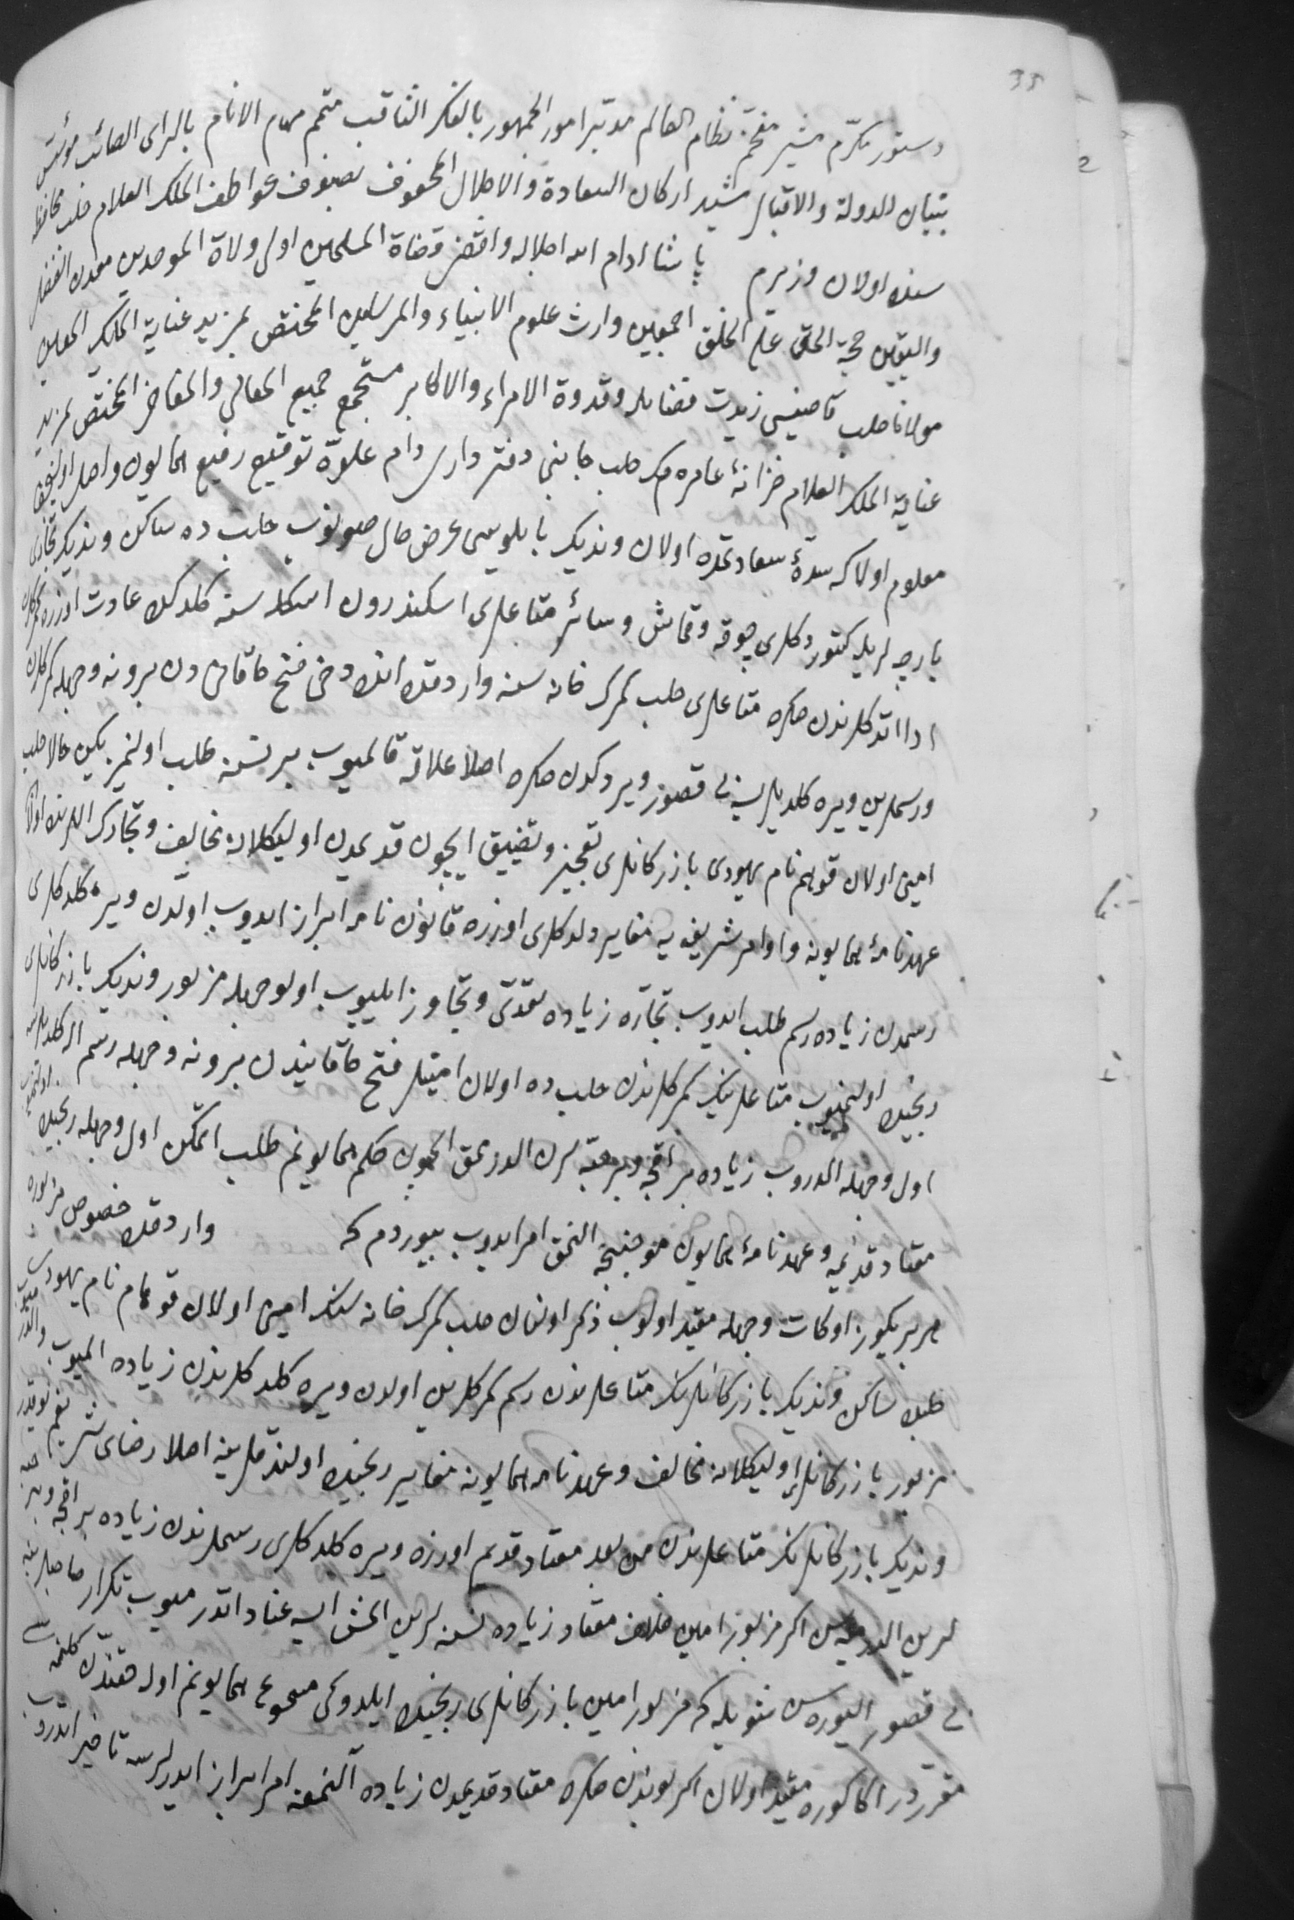 35
دستور مکرّم مشیر مفخّم نظام العالم مدبّر امور الجمهور بالفکر الثاقب متمّم مهام الانام بالرای الصائب مؤسّس
بنیان الدولة والاقبال مشید ارکان السعادة والاجلال المحفوف بصنوف عواطف الملک العلام حلب محافظه
سنده اولان وزیرم پاشا ادام الله اجلاله واقضی قضاة المسلمین اولی ولاة الموحدین معدن الفضل
والیقین حجّة الحق علی الخلق اجمعین وارث علوم الانبیاء والمرسلین المختصّ بمزید عنایة الملک المعین
مولانا حلب قاضیسی زیدت فضایله وقدوة الامراء والاکابر مستجمع جمیع المعالی والمفاخر المختصّ بمزید
عنایة الملک العلام خزانهٔ عامره مک حلب جانبی دفترداری دام علوّه توقیع رفیع همایون واصل اولیجق
معلوم اولا که سدّهٔ سعادتمده اولان وندیک بایلوسی عرض حال صونوب حلب ده ساکن وندیک تجّاری
بارچه لریله کتوردکلری چوقه وقماش وسائر متاعلری اسکندرون اسکله سنه کلدکده عادت اوزره کمرکلرن
ادا اتدکلرندن صکره متاعلری حلب کمرک خانه سنه واردقده انده دخی فتح خاقانی دن برو نه وجهله کمرکلرن
ورسملرین ویره کلدیلر ایسه بی قصور ویردکدن صکره اصلا علاقه قالمیوب بر نسنه طلب اولنمز ایکن حالا حلب
امینی اولان قوهم نام یهودی بازرکانلری تعجیز وتضییق ایچون قدیمدن اولیکلانه مخالف وتجارک اللرنده اولان
عهدنامهٔ همایونه واوامر شریفه یه مغایر ولدکلری اوزره قانون نامه ابراز ایدوب اولدن ویره کلدکلری
رسمدن زیاده رسم طلب ایدوب تجّاره زیاده تعدّی وتجاوز ایلیوب اولوجهله مزبور وندیک بازرکانلری
رنجیده اولنمیوب متاعلرینک کمرکلرندن حلب ده اولان امینلر فتح خاقانیدن برو نه وجهله رسم اله کلدیلر ایسه
اول وجهله الدروب زیاده بر اقچه وبر حبّه لرن الدرمق ایچون حکم همایونم طلب اتمکین اول وجهله رنجیده اولنمیوب
معتاد قدیمه وعهدنامهٔ همایون موجبنجه النمق امر ایدوب بیوردم که واردقده خصوص مزبوره
هر بریکوز اوکات وجهله مقید اولوب ذکر اولنان حلب کمرک خانه سنک امینی اولان قوهام نام یهودی
حلبده ساکن وندیک بازرکانلرینک متاعلرندن رسم کمرکلرین اولدن ویره کلدکلرندن زیاده المیوب والدرمیوب
مزبور بازرکانلری اولیکلانه مخالف وعهدنامه همایونه مغایر رنجیده اولندقلرینه اصلا رضای شریفم یوقدر
وندیک بازرکانلرینک متاعلرندن من بعد معتاد قدیم اوزره ویره کلدکلری رسملرندن زیاده بر اقچه وبر حبه
لرین الدرمیه سن اکر مزبور امین خلاف معتاد زیاده نسنه لرین المش ایسه عناد اتدرمیوب تکرار صاحبلرینه
بی قصور الیوره سن شویله که مزبور امین بازرکانلری رنجیده ایلدوکی مسموع همایونم اوله حقندن کلنمه سی
مقرر در اکا کوره مقید اولاسن اکر بوندن صکره معتاد قدیمدن زیاده النمغه امر ابراز ایدرلرسه تاخیر اتدروب